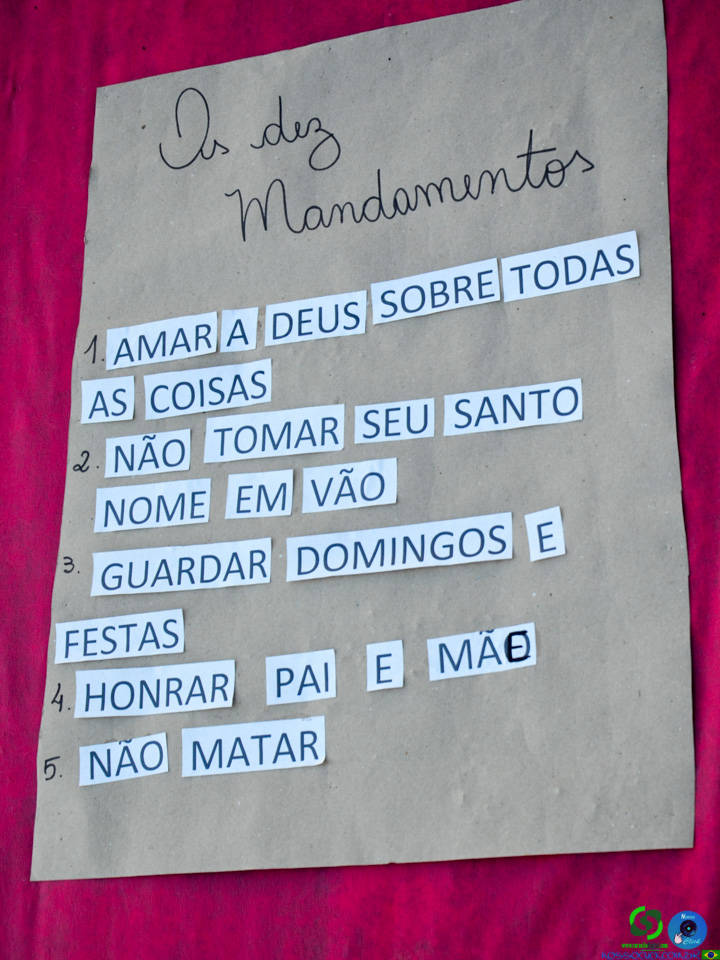 Os dez
Mandamentos
1. AMAR A DEUS SOBRE TODAS
AS COISAS
2. NÃO TOMAR SEU SANTO
NOME EM VÃO
3. GUARDAR DOMINGOS E
FESTAS
4. HONRAR PAI E MÃE
5. NÃO MATAR
Nosso
Click